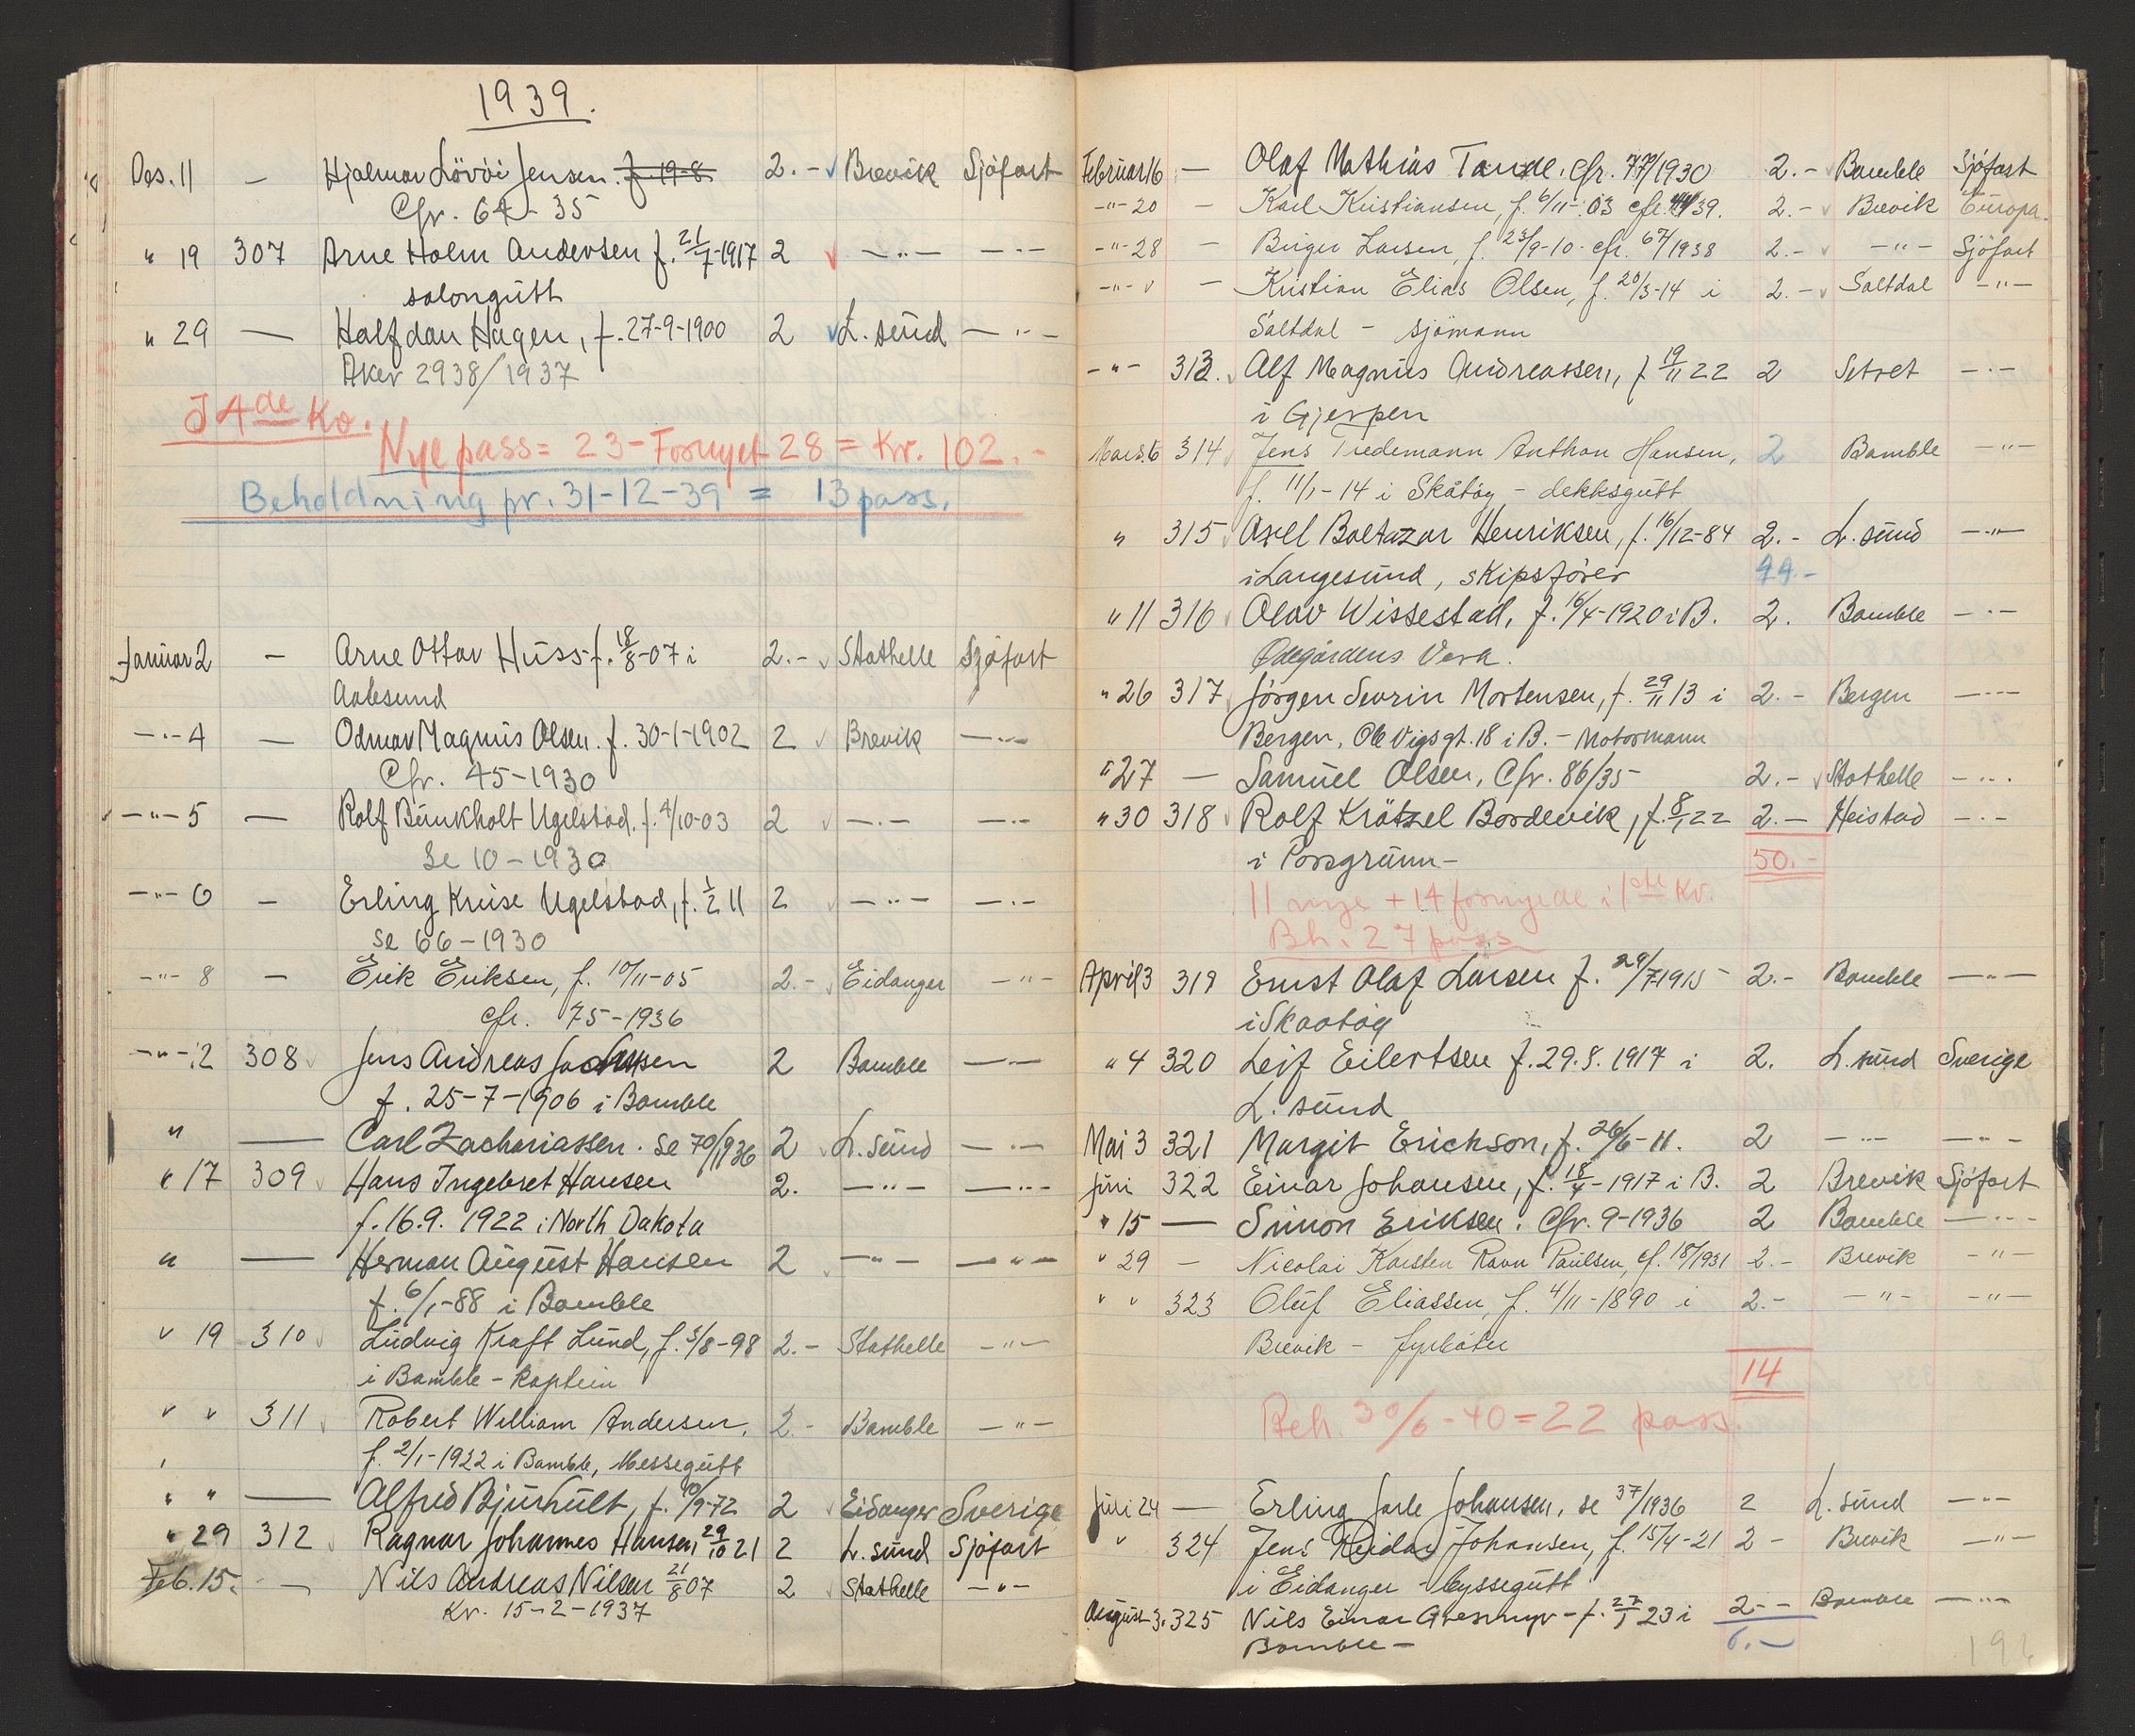 1939.
Des. 11 — Hjalmar Lövöi Jensen. f 19-8 2.- Brevik Sjöfart
Cfr. 64 - 35
" 19 307 Arne Holm Andersen f. 21/7-1917 2 —"— —"—
salongutt
" 29 — Halfdan Hagen, f. 27-9-1900 2 L. sund —"—
Aker 2938/1937
I 4de Kv.
Nye pass = 23 - Fornyet 28 = Kr. 102.-
Beholdning pr. 31-12-39 = 13 pass.
Januar 2 — Arne Ottar Huss f. 18/8-07 i 2.- Stathelle Sjöfart
Aalesund
—"— 4 — Odmar Magnus Olsen. f. 30-1-1902 2 Brevik —"—
Cfr. 45-1930
—"— 5 — Rolf Bunkholt Ugelstad. f. 4/10-03 2 —"— —"—
Se 10-1930
—"— 6 — Erling Kruse Ugelstad, f. 1/2 11 2 —"— —"—
se 66-1930
—"— 8 — Erik Eriksen, f. 10/11-05 2.- Eidanger —"—
cfr. 75-1936
—"— 12 308 Jens Andreas 2 Bamble —"—
f. 25-7-1906 i Bamble
" — Carl Zachariassen. se 70/1936 2 L. sund —"—
" 17 309 Hans Ingebret Hansen 2. —"— —"—
f. 16.9. 1922 i North Dakota
" — Herman August Hansen 2 —"— —"—
f. 6/1-88 i Bamble
" 19 310 Ludvig Kraft Lund, f. 5/8-98 2.- Stathelle —"—
i Bamble - kaptein
" " 311 Robert William Andersen, 2.- Bamble —"—
f. 2/1-1922 i Bamble, Messegutt
" " — Alfred Bjurhult, f. 10/9-72 2 Eidanger Sverige
" 29 312 Ragnar Johannes Hansen, 29/10 21 2 L. sund Sjöfart
Feb. 15. — Nils Andreas Nilsen 21/8 07 2 Stathelle —"—
Kr. 15-2-1937
Februar 16 — Olaf Mathias Tande. Cfr. 77/1930 2.- Bamble Sjöfart
—"— 20 — Karl Kristiansen, f. 6/11-03 cfr. 39. 2.- Brevik Europa.
—"— 28 — Birger Larsen, f. 23/9-10. cfr. 67/1938 2.- —"— Sjöfart
—"— " — Kristian Elias Olsen, f. 20/3-14 i 2.- Saltdal —"—
Saltdal - sjömann
—"— 313. Alf Magnus Andreassen, f 19/11 22 2 Setret —"—
i Gjerpen
Mars. 6 314 Jens Tiedemann Anthon Hansen, 2 Bamble —"—
f. 11/1-14 i Skåtöy - dekksgutt
" 315 Axell Baltazar Henriksen, f. 16/12-84 2.- L. sund —"—
i Langesund, skipsförer 44.-
" 11 316 Olav Wissestad, f. 16/4-1920 i B. 2. Bamble —"—
Ödegårdens Verk.
" 26 317 Jörgen Sevrin Mortensen, f. 29/11 13 i 2.- Bergen —"—
Bergen, Ole Vigs gt. 18 i B. - Motormann
" 27 — Samuel Olsen, Cfr. 86/35 2.- Stathelle —"—
" 30 318 Rolf Krötzel Bordevik, f. 8/1 22 2.- Heistad —"—
i Porsgrunn - 50.-
11 nye + 14 fornyede i 1ste Kv.
Bh. 27 pass
April 3 319 Ernst Olaf Larsen f. 29/7 1915 2.- Bamble —"—
i Skaatöy
" 4 320 Leif Eilertsen f. 29.8. 1917 i 2. L. sund Sverige
L. sund
Mai 3 321 Margit Erickson, f. 26/6-11. 2 —"— —"—
Juni 322 Einar Johansen, f. 18/4-1917 i B. 2 Brevik Sjöfart
" 15 — Simon Eriksen. Cfr. 9-1936 2 Bamble —"—
" 29 — Nicolai Karsten Ravn Paulsen, cf. 18/1931 2.- Brevik —"—
" " 323 Oluf Eliassen, f. 4/11-1890 i 2.- —"— —"—
Brevik - fyrböter
14
Beh. 30/6-40 = 22 pass.
Juli 24 — Erling Jarle Johansen, se 37/1936 2 L. sund —"—
" 324 Jens Reidar Johansen, f. 15/4-21 2- Brevik —"—
i Eidanger - byssegutt
August 3. 325 Nils Einar - f. 27/1 23 i 2.- Bamble —"—
Bamble - 6.-